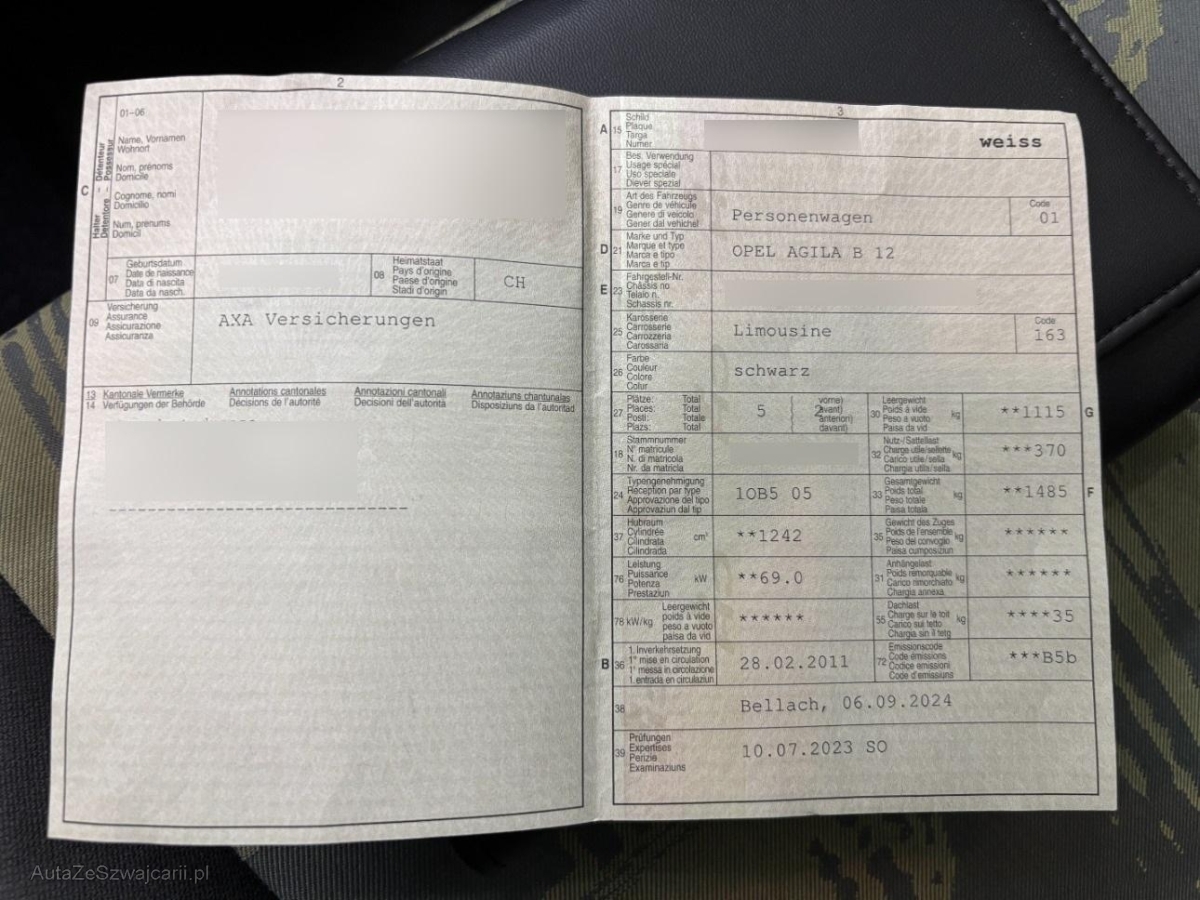 2
01-06
Halter
Détenteur
Detentore
Possessur
C
Name, Vornamen
Wohnort
Nom, prénoms
Domicile
Cognome, nomi
Domicilio
Num, prenums
Domicil
07
Geburtsdatum
Date de naissance
Data di nascita
Data da nasch.
08
Heimatstaat
Pays d'origine
Paese d'origine
Stadi d'origin
CH
09
Versicherung
Assurance
Assicurazione
Assicuranza
AXA Versicherungen
13 Kantonale Vermerke Annotations cantonales Annotazioni cantonali Annotaziuns chantunalas
14 Verfügungen der Behörde Décisions de l'autorité Decisioni dell'autorità Disposiziuns da l'autoritad
3
A 15
Schild
Plaque
Targa
Numer
weiss
17
Bes. Verwendung
Usage spécial
Uso speciale
Diever spezial
19
Art des Fahrzeugs
Genre de véhicule
Genere di veicolo
Gener dal vehichel
Personenwagen
Code
01
D 21
Marke und Typ
Marque et type
Marca e tipo
Marca e tip
OPEL AGILA B 12
E 23
Fahrgestell-Nr.
Châssis no
Telaio n.
Schassis nr.
25
Karosserie
Carrosserie
Carrozzeria
Carossaria
Limousine
Code
163
26
Farbe
Couleur
Colore
Colur
schwarz
27
Plätze: Total
Places: Total
Posti: Totale
Plazs: Total
5
vorne)
avant)
anteriori)
davant)
2
30
Leergewicht
Poids à vide
Peso a vuoto
Paisa da vid
kg
**1115
G
18
Stammnummer
N° matricule
N. di matricola
Nr. da matricla
32
Nutz-/Sattellast
Charge utile/sellette
Carico utile/sella
Chargia utila/sella
kg
***370
24
Typengenehmigung
Réception par type
Approvazione del tipo
Approvaziun dal tip
1OB5 05
33
Gesamtgewicht
Poids total
Peso totale
Paisa totala
kg
**1485
F
37
Hubraum
Cylindrée
Cilindrata
Cilindrada
cm³
**1242
35
Gewicht des Zuges
Poids de l'ensemble
Peso del convoglio
Paisa cumposiziun
kg
******
76
Leistung
Puissance
Potenza
Prestaziun
kW
**69.0
31
Anhängelast
Poids remorquable
Carico rimorchiato
Chargia annexa
kg
******
78 kW/kg
Leergewicht
poids à vide
peso a vuoto
paisa da vid
******
55
Dachlast
Charge sur le toit
Carico sul tetto
Chargia sin il tetg
kg
****35
B 36
1. Inverkehrsetzung
1re mise en circulation
1a messa in circolazione
1. entrada en circulaziun
28.02.2011
72
Emissionscode
Code émissions
Codice emissioni
Code d'emissiuns
***B5b
38
Bellach, 06.09.2024
39
Prüfungen
Expertises
Perizie
Examinaziuns
10.07.2023 SO
AutaZeSzwajcarii.pl